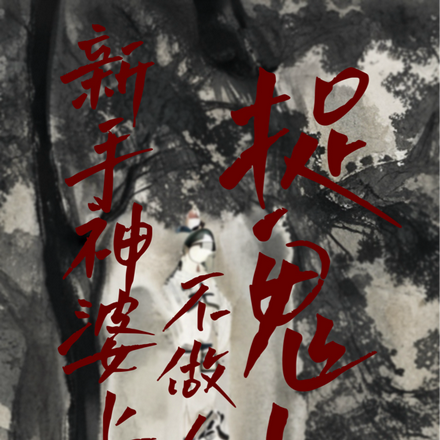 捉鬼
不做
新手神婆